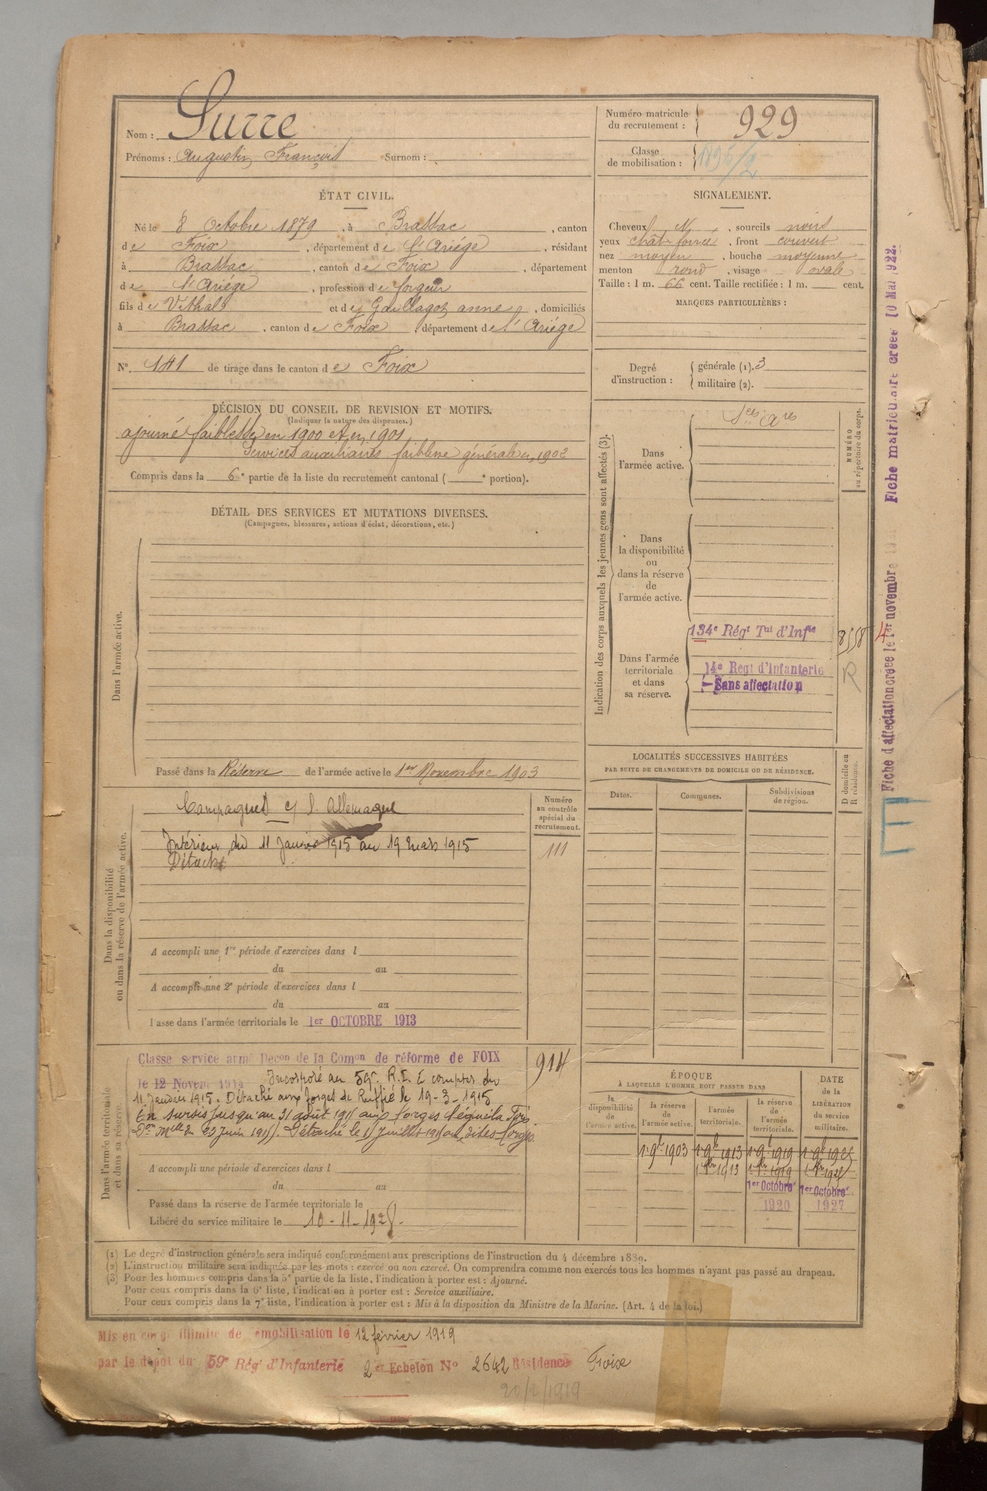 Nom : Surre
Prénoms : Augustin François Surnom :
Numéro matricule du recrutement : 929
Classe de mobilisation :
ÉTAT CIVIL.
Né le 8 Octobre 1879, à Brassac, canton
de Foix, département de l'Ariège, résidant
à Brassac, canton de Foix, département
de l'Ariège, profession de forgeur
fils de Vithal et de anne, domiciliés
à Brassac, canton de Foix département de l'Ariège
N° 141 de tirage dans le canton de Foix
SIGNALEMENT.
Cheveux N, sourcils noirs
yeux chât foncé, front couvert
nez moyen, bouche moyenne
menton rond, visage ovale
Taille : 1 m. 66 cent. Taille rectifiée : 1 m. cent.
MARQUES PARTICULIÈRES :
Degré d'instruction : générale (1). 3
militaire (2).
DÉCISION DU CONSEIL DE REVISION ET MOTIFS.
(Indiquer la nature des dispenses.)
ajourné faiblesse en 1900 et en 1901
Services auxiliaires faiblesse générale en 1902
Compris dans la 6e partie de la liste du recrutement cantonal ( e portion).
DÉTAIL DES SERVICES ET MUTATIONS DIVERSES.
(Campagnes, blessures, actions d'éclat, décorations, etc.)
Dans l'armée active.
Passé dans la Réserve de l'armée active le 1er Novembre 1903
Indication des corps auxquels les jeunes gens sont affectés (3).
NUMÉRO au répertoire du corps.
Dans l'armée active.
Ses Ares
Dans la disponibilité ou dans la réserve de l'armée active.
Dans l'armée territoriale et dans sa réserve.
134e Régt Tal d'Infie
14e Regt d'Infanterie
Sans affectation
R
LOCALITÉS SUCCESSIVES HABITÉES
PAR SUITE DE CHANGEMENTS DE DOMICILE OU DE RÉSIDENCE.
Dates. Communes. Subdivisions de région. D domicile ou R résidence.
Dans la disponibilité ou dans la réserve de l'armée active.
Numéro au contrôle spécial du recrutement.
Campagnes c/ l'Allemagne
Intérieur du 11 Janvier 1915 au 19 mars 1915
Détaché
111
A accompli une 1re période d'exercices dans l
du au
A accompli une 2e période d'exercices dans l
du au
Passé dans l'armée territoriale le 1er OCTOBRE 1913
Dans l'armée territoriale et dans sa réserve.
Classé service armé Decon de la Comon de réforme de FOIX
914
le 12 Novem 1914 Incorporé au 59e R.I. à compter du
11 Janvier 1915. Détaché aux forges de Ruffié le 19-3-1915
En sursis jusqu'au 31 août 1915 aux forges
A accompli une période d'exercices dans l
du au
Passé dans la réserve de l'armée territoriale le
Libéré du service militaire le 10-11-1928.
ÉPOQUE
À LAQUELLE L'HOMME DOIT PASSER DANS
DATE de la LIBÉRATION du service militaire.
la disponibilité de l'armée active. la réserve de l'armée active. l'armée territoriale. la réserve de l'armée territoriale.
1 9b 1903 1 9b 1913 1 9b 1919 1 9b 1925
1913 1919
1er Octobre 1er Octobre
1920 1927
(1) Le degré d'instruction générale sera indiqué conformément aux prescriptions de l'instruction du 4 décembre 1889.
(2) L'instruction militaire sera indiquée par les mots : exercé ou non exercé. On comprendra comme non exercés tous les hommes n'ayant pas passé au drapeau.
(3) Pour les hommes compris dans la 5e partie de la liste, l'indication à porter est : Ajourné.
Pour ceux compris dans la 6e liste, l'indication à porter est : Service auxiliaire.
Pour ceux compris dans la 7e liste, l'indication à porter est : Mis à la disposition du Ministre de la Marine. (Art. 4 de la loi.)
Mis en congé illimité de démobilisation le 12 février 1919
par le dépôt du 59e Rég' d'Infanterie 2e Echelon N° 2642 Résidence Foix
Fiche d'affectation créée le 1er novembre
Fiche matriculaire créée 10 Mai 1922.